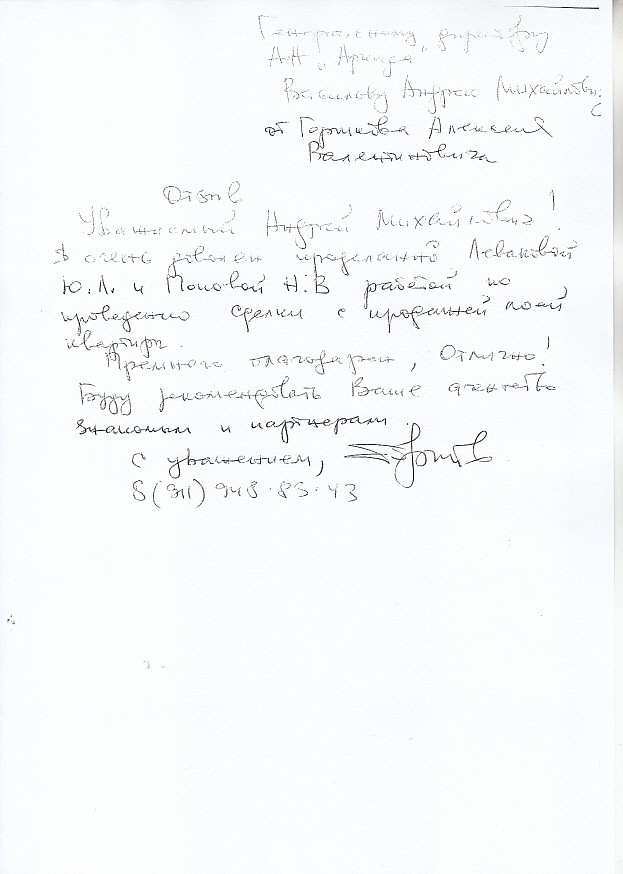 Генеральному директору
А.Н. "Аркада"
Васильеву Андрею Михайлович
от Горшкова Алексея
Валентиновича
Отзыв
Уважаемый Андрей Михайлович!
Я очень доволен проделанной Леваковой
Ю.Л. и Поповой Н.В работой по
проведению сделки с продажей моей
квартиры.
Премного благодарен, Отлично!
Буду рекомендовать Ваше агентство
знакомым и партнерам.
С уважением,
8(911) 948-83-43